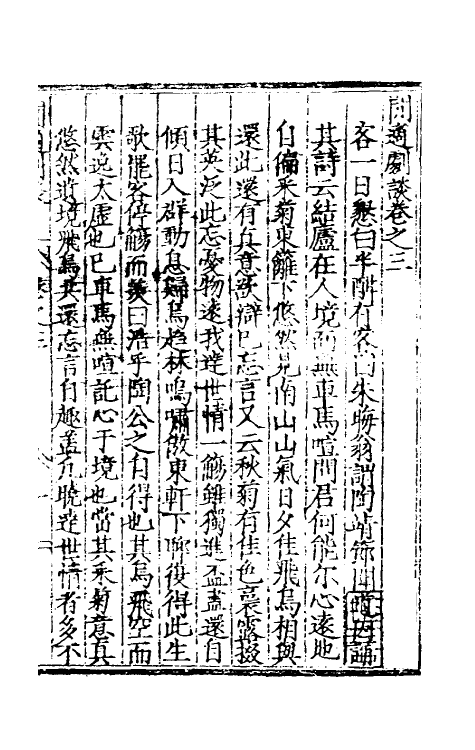 閒適劇談卷之三
客一日懇白半酣有客問朱晦翁謂陶靖節
其詩云結廬在人境而無車馬喧問君何能尔心遠地
自偏采菊東籬下悠然見南山山氣日夕佳飛鳥相與
還此還有真意欲辯已忘言又云秋菊有佳色裛露掇
其英泛此忘憂物遠我達世情一觴雖獨進盃盡還自
傾日入群動息歸鳥趋林鳴嘯傲東軒下聊復得此生
歌罷客停觴而羙曰浩乎陶公之自得也其鳥飛空而
雲逸太虛也已車馬無喧託心于境也當其采菊意真
悠然逍境飛鳥共還忘言自趣盖凡曉達世情者多不